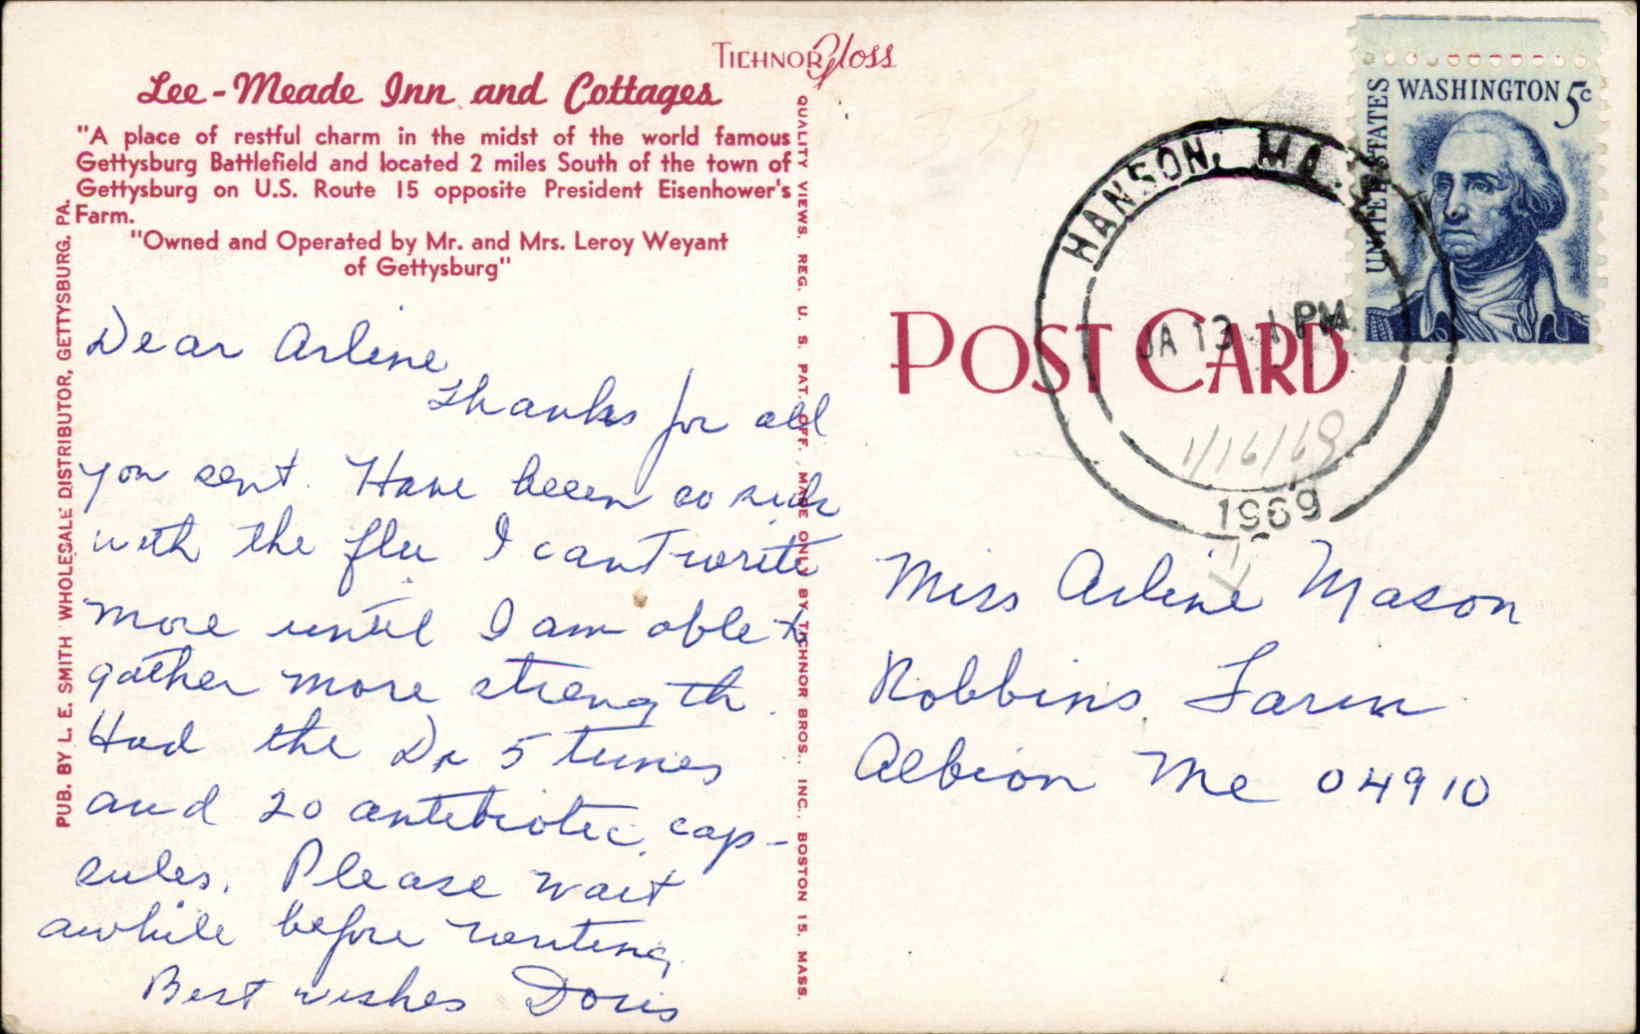 TICHNOR Gloss
Lee-Meade Inn and Cottages
"A place of restful charm in the midst of the world famous
Gettysburg Battlefield and located 2 miles South of the town of
Gettysburg on U.S. Route 15 opposite President Eisenhower's
Farm.
"Owned and Operated by Mr. and Mrs. Leroy Weyant
of Gettysburg"
PUB. BY L. E. SMITH WHOLESALE DISTRIBUTOR, GETTYSBURG, PA.
Dear Arline
Thanks for all
you sent. Have been so sick
with the flu I cant write
more until I am able to
gather more strength.
Had the Dr 5 times
and 20 antibiotic cap-
sules. Please wait
awhile before writing.
Best wishes Doris
QUALITY VIEWS. REG. U. S. PAT. OFF. MADE ONLY BY TICHNOR BROS., INC., BOSTON 15, MASS.
UNITED STATES
WASHINGTON 5c
HANSON, MA
JA 13 1 PM
1969
POST CARD
1/16/69
Miss Arline Mason
Robbins Farm
Albion Me 04910